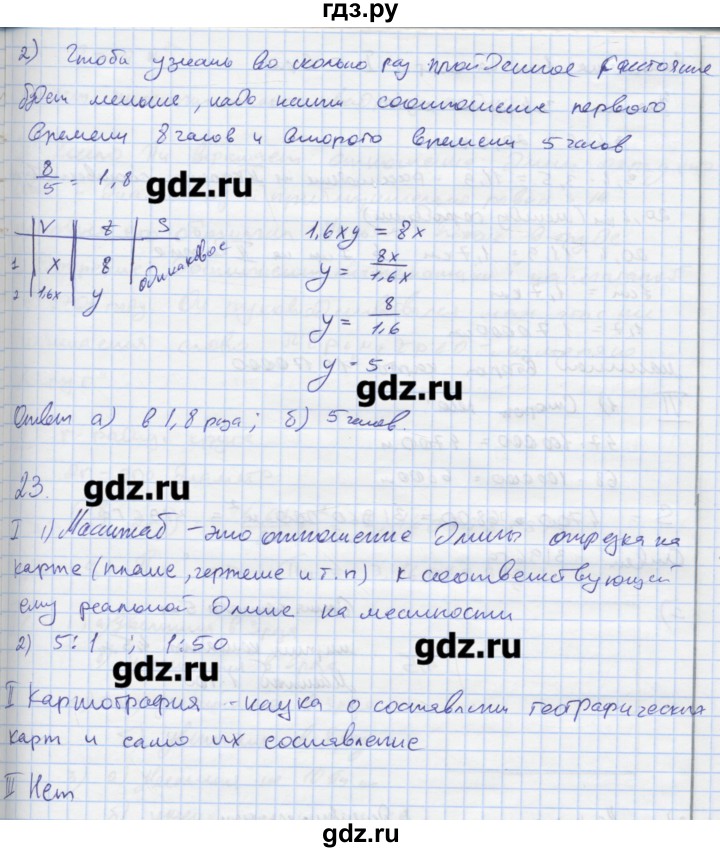 гдз.ру
2) Чтобы узнать во сколько раз пройденное расстояние
будет меньше, надо найти соотношение первого
времени 8 часов и второго времени 5 часов
8/5 = 1,8
gdz.ru
V t S
1 x 8 одинаковое
2 1,6x y
1,6xy = 8x
y = 8x/1,6x
y = 8/1,6
y = 5.
gdz.ru
Ответ а) в 1,8 раза; б) 5 часов.
23.
gdz.ru
I 1) Масштаб - это отношение длины отрезка на
карте (плане, чертеже и т.п) к соответствующей
ему реальной длине на местности
2) 5:1 ; 1:50
gdz.ru
gdz.ru
II Картография - наука о составлении географических
карт и само их составление
III Нет
gdz.ru